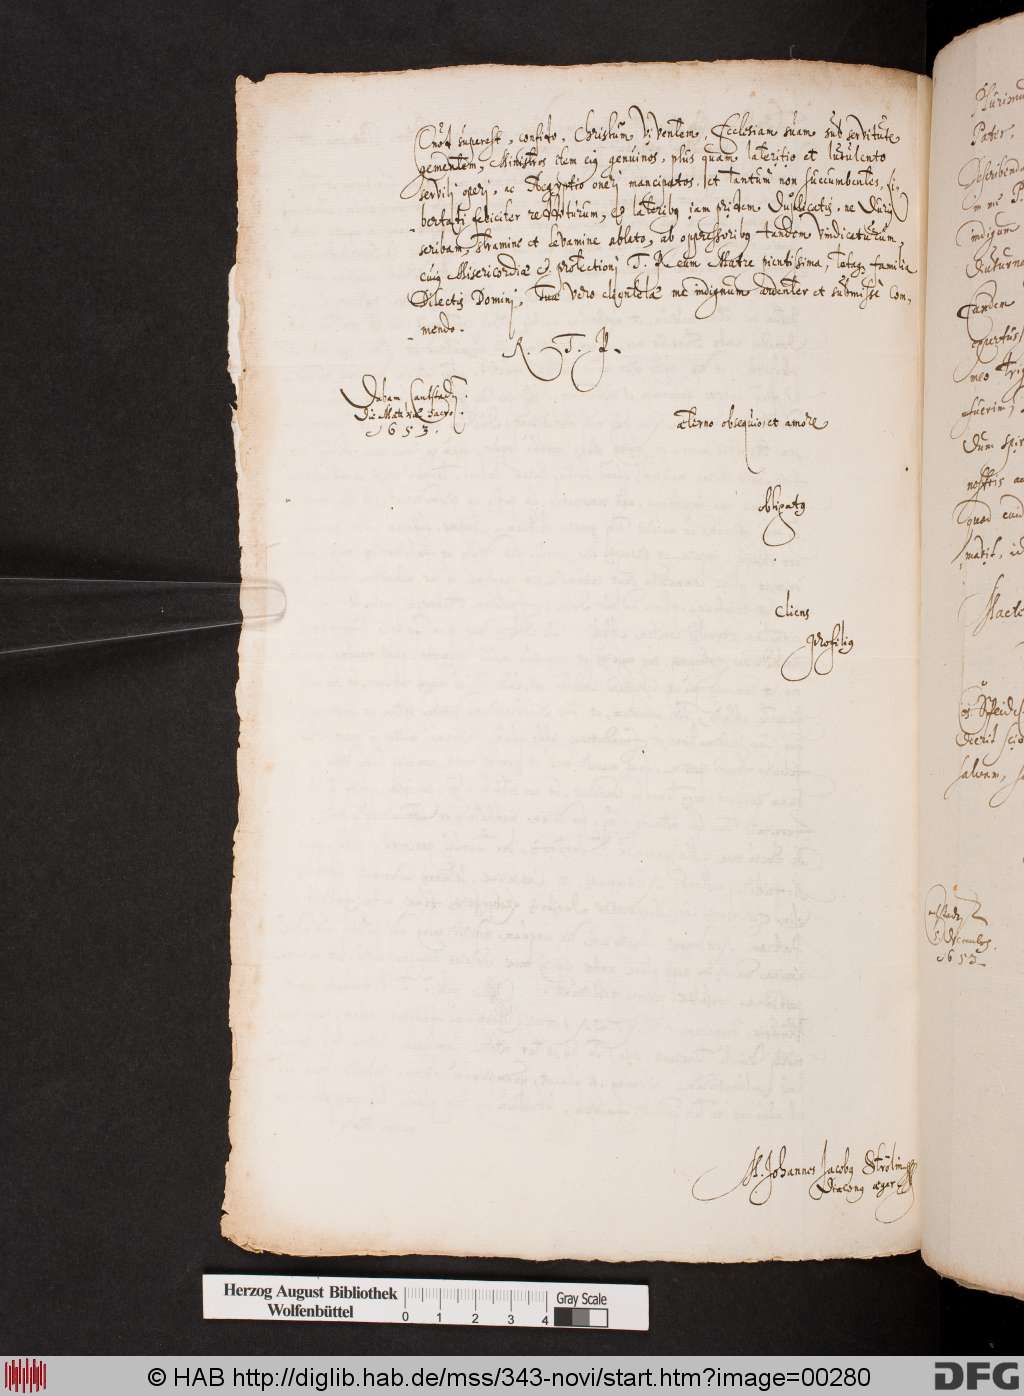 Quod superest, confido, Christum Viventem, Ecclesiam suam sub servitute
gementem, Ministros etiam eiq genuinos, plus quam lateritio et lutulento
servilj operj, ac Aegyptio onerj mancipatos, et tantum non succumbentes, li-
bertati feliciter restiturum, & lateribq jam pridem duplicatis, ne durig
scribam, stramine et levamine ablato, ab oppressoribq tandem vindicaturum,
cuiq Misericordiæ & protectionj T. R. cum Matre pientissima, totaq familia
Dilectis Dominj, Tuæ vero clientelæ me indignum ardenter et submisse com-
mendo.
R. T. P.
Dabam Cantstadij.
Die Matthiæ sacro.
1653.
æterno obsequio, et amore
obligatq
Cliens
M. Johannes Jacobq Strölin
Diaconq æger
Plurimu
Pater.
Describenda
indigum
Tandem
fuerim,
Dum spir
quod
salvam,
Decembris.
1653
Herzog August Bibliothek
Wolfenbüttel
0 1 2 3 4
Gray Scale
© HAB http://diglib.hab.de/mss/343-novi/start.htm?image=00280
DFG